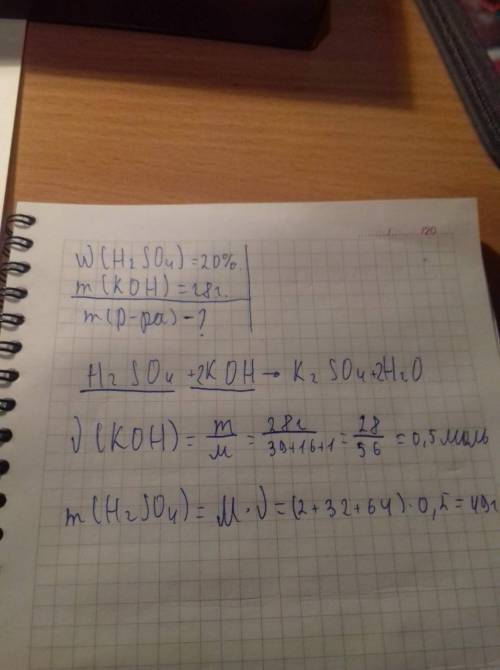 / /20
W(H₂SO₄)=20%.
m(KOH)=28г.
m(р-ра)-?
H₂SO₄+2KOH→K₂SO₄+2H₂O
ν(KOH)=m/м=28г/39+16+1=28/56=0,5моль
m(H₂SO₄)=M·ν=(2+32+64)·0,5=49г